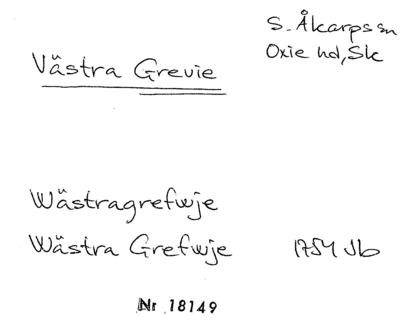 S. Åkarps sn
Västra Grevie
Oxie hd, Sk
Wästragrefwje
Wästra Grefwje 1754 Jb
Nr 18149